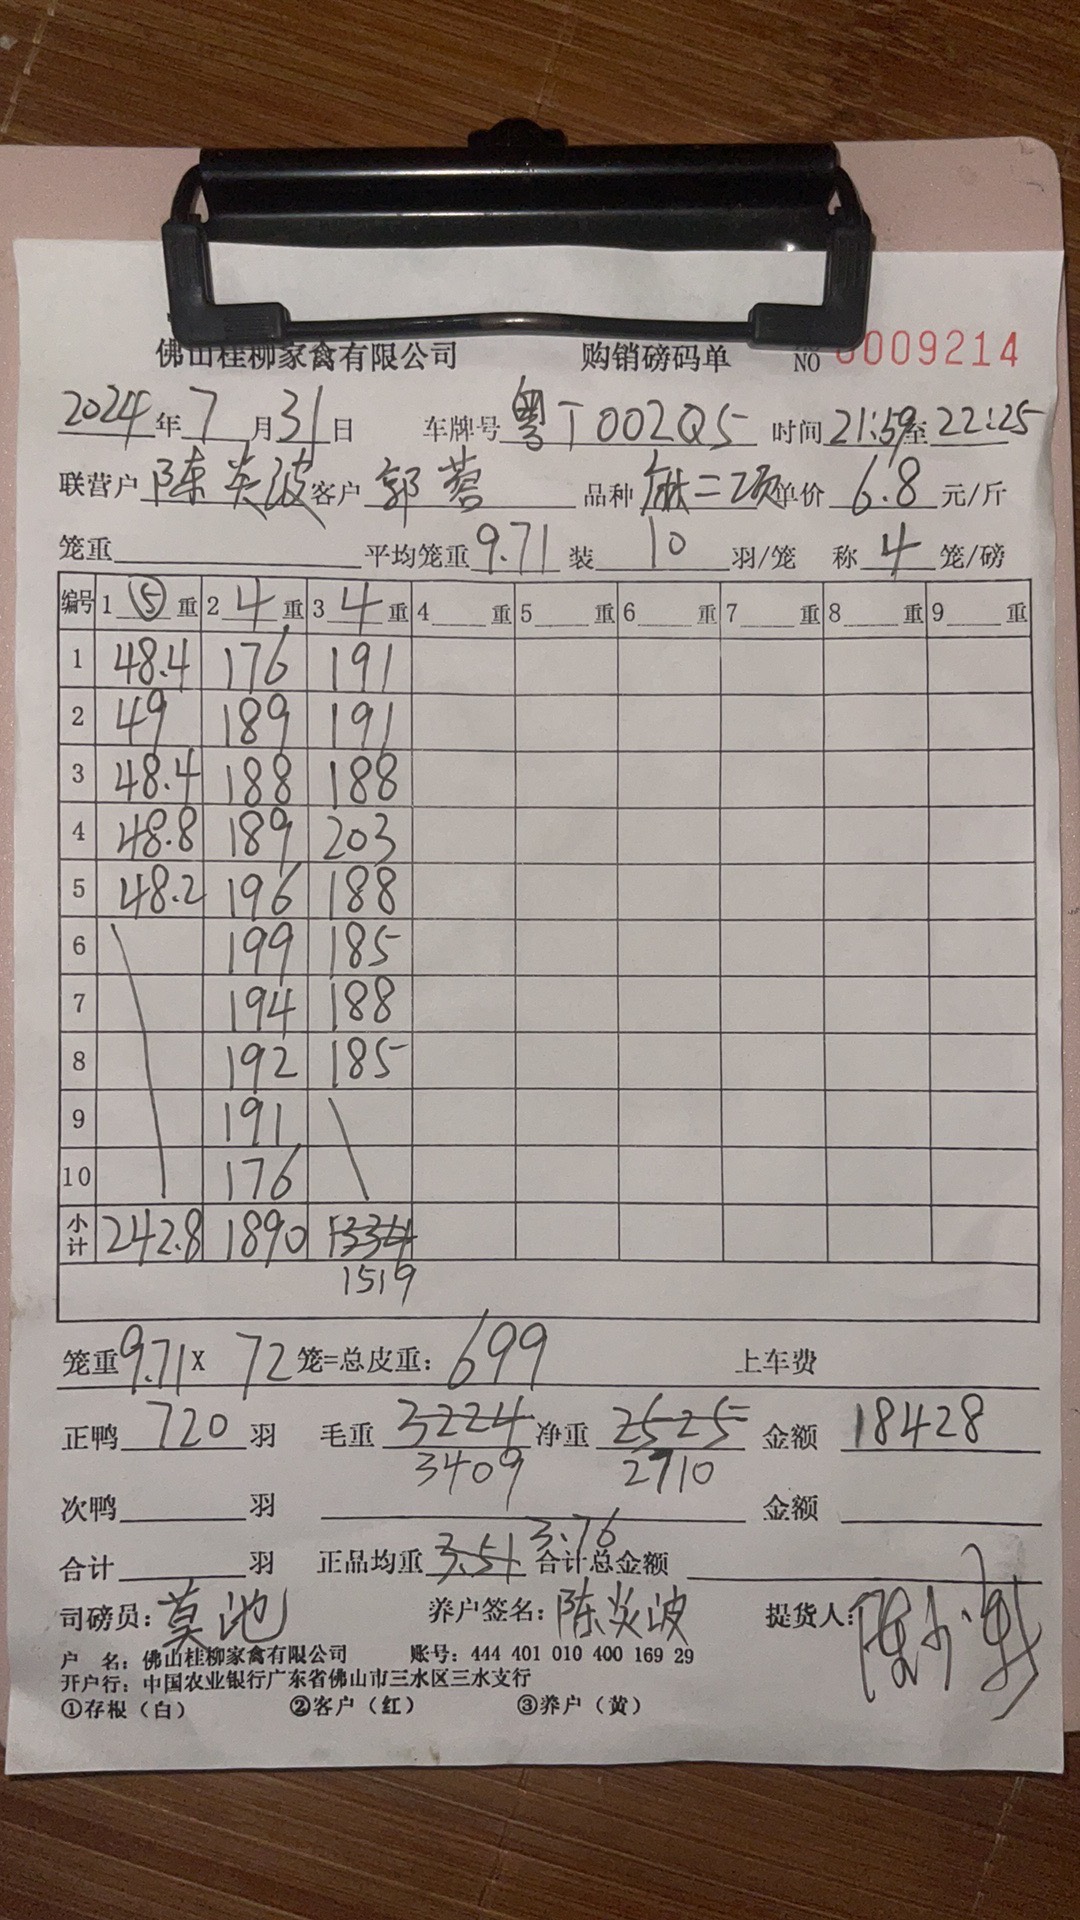 佛山桂柳家禽有限公司 购销磅码单 NO 0009214
2024年7月31日 车牌号 粤T002Q5 时间21:59至22:25
联营户 陈炎波 客户 郭蓉 品种 麻二项 单价 6.8 元/斤
笼重 平均笼重9.71 装 10 羽/笼 称 4 笼/磅
编号 1 ⑤ 重 2 4 重 3 4 重 4 重 5 重 6 重 7 重 8 重 9 重
1 48.4 176 191
2 49 189 191
3 48.4 188 188
4 48.8 189 203
5 48.2 196 188
6 199 185
7 194 188
8 192 185
9 191
10 176
小计 242.8 1890 1334
1519
笼重9.71X 72笼=总皮重:699 上车费
正鸭 720 羽 毛重 3224 净重 2525 金额 18428
3409 2710
次鸭 羽 金额
3.76
合计 羽 正品均重 3.51 合计总金额
司磅员:莫池 养户签名:陈炎波 提货人:
户 名:佛山桂柳家禽有限公司 账号:444 401 010 400 169 29
开户行:中国农业银行广东省佛山市三水区三水支行
①存根(白) ②客户(红) ③养户(黄)